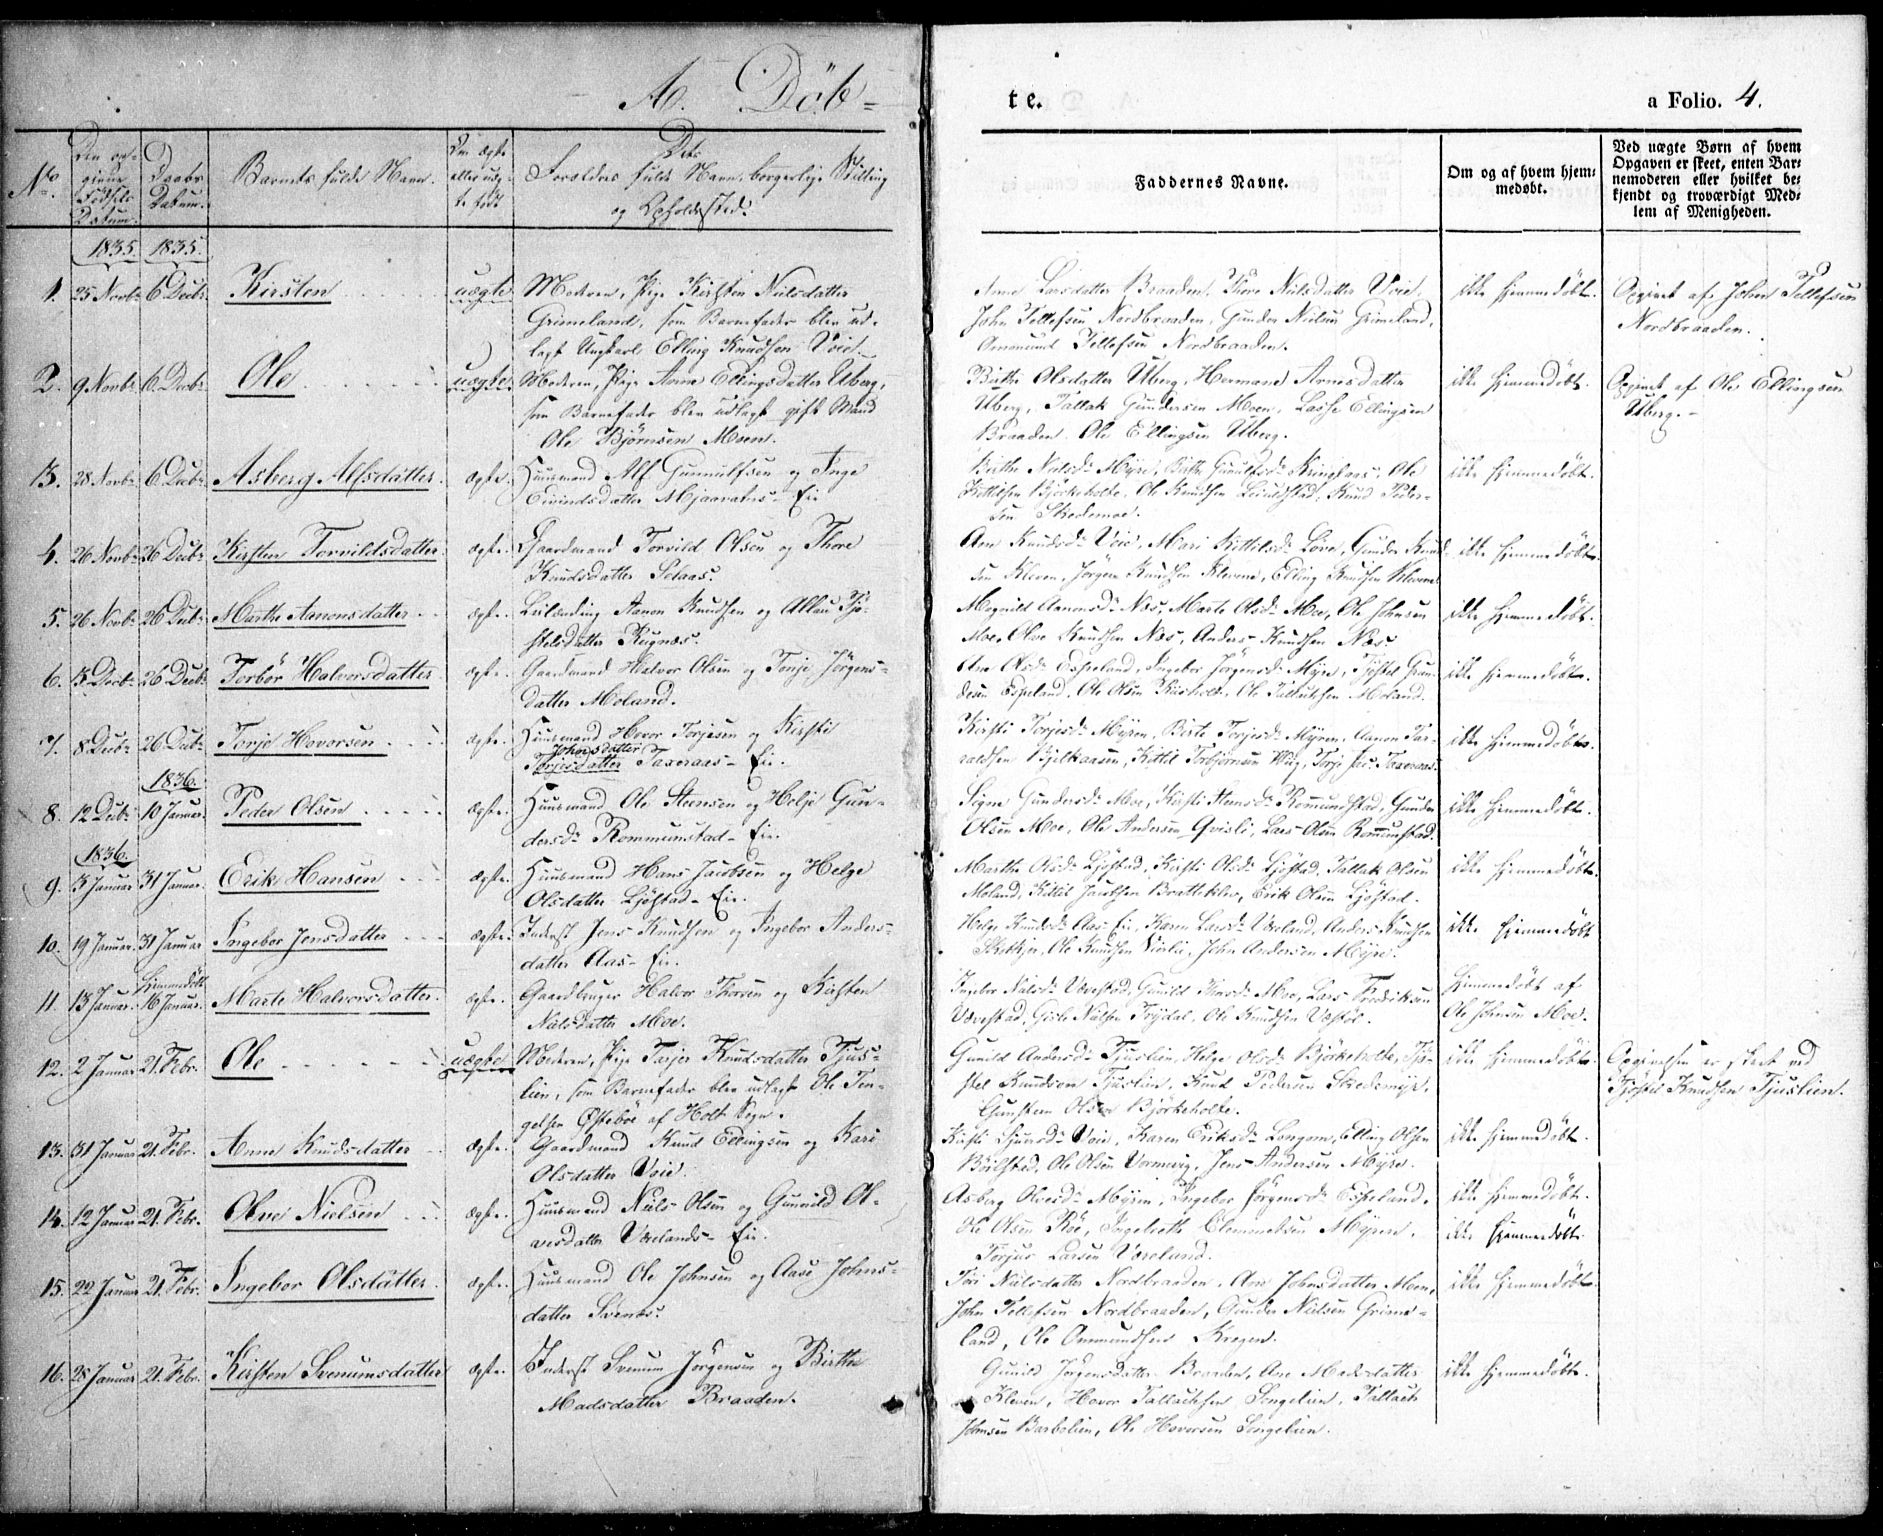 A. Döb-
te.
a Folio. 4.
No.
Den op-
givne
Födsels
Datum.
Daabs
Datum.
Barnets fulde Navn.
Om ægte
eller uæg-
te født
Dets
Forældres fulde Navn, borgerlige Stilling
og Opholdssted.
Faddernes Navne.
Om og af hvem hjem-
medøbt.
Ved uægte Børn af hvem
Opgaven er skeet, enten Bar-
nemoderen eller hvilket be-
kjendt og troværdigt Med-
lem af Menigheden.
1835. 1835.
1. 25 Novbr 6 Decbr Kirsten uægte Moderen, Pige Kirsten Nielsdatter
Grimeland, som Barnefader blev ud-
lagt Ungkarl Elling Knudsen Voie.
Anne Larsdatter Braaden, Thore Nielsdatter Voie,
John Tellefsen Nordbraaden, Gunder Nielsen Grimeland,
Omomund Tellefsen Nordbraaden.
ikke hjemmedøbt.
Opgivet af John Tellefsen
Nordbraaden.
2. 9 Novbr 6. Decbr Ole uægte Moderen, Pige Anne Ellingsdatter Uberg,
som Barnefader blev udlagt gift Mand
Ole Björnsen Moen.
Birthe Olsdatter Uberg, Hermane Arnesdatter
Uberg, Tallak Gundersen Moen, Lasse Ellingsen
Braaden. Ole Ellingsen Uberg.
ikke hjemmedøbt.
Opgivet af Ole Ellingsen
Uberg.-
3. 28 Novbr 6 Decbr Asberg Alfsdatter ægte. Huusmand Alf Gunnulfsen og Inge
Eivindsdatter Mjaavatns-Eie
Birthe Nielsdr Myre, Birthe Gunulfsdr , Ole
Kittilsen Björkeholte, Ole Knudsen , Knud Peder-
sen Skedemoe.
ikke hjemmedøbt.
4. 26 Novbr 26 Decbr Kirsten Torvildsdatter ægte. Gaardmand Torvild Olsen og Thore
Knudsdatter Selaas.
Ane Knudsdr Voie, Mari Kittilsdr Löve, Gunder Knud-
sen Kleven, Jörgen Knudsen Klevene, Elling Knudsen Klevene
ikke hjemmedøbt.
5. 26 Novbr 26 Decbr Marthe Aanonsdatter ægte. Leilænding Aanon Knudsen og Tjö-
stelsdatter .
Magnild Aanonsdr Næs, Marte Olsdr Moe, Ole Johnsen
Moe, Olve Knudsen Næs, Anders Knudsen Næs.
ikke hjemmedøbt.
6. 3 Decbr 26 Decbr Torbör Halvorsdatter ægte. Gaardmand Halvor Olsen og Tonje Jörgens-
datter Moland.
Ane Olsdr Espeland, Ingebor Jörgensdr Myre, Tjöstel Gun-
dersen Espeland, Ole Olsen , Ole Moland.
ikke hjemmedøbt.
7. 8 Decbr 26 Decbr Torje Hovorsen ægte. Huusmand Hovor Torjesen og Kirsti
Johnsdatter
Torjesdatter Taxeraas-Eie.
Kirsti Torjesdr Myren, Birte Torjesdr Myren, Aanon Tar-
raldsen , Kittil Torbjörnsen , Torje Taxeraas.
ikke hjemmedøbt.
1836.
8. 12 Decbr 10 Januar. Peder Olsen ægte. Huusmand Ole Steensen og Helje Gun-
dersdr Rommunstad-Eie.
Signe Gundersdr Moe, Kirsti Steensdr Rommundstad, Gunder
Olsen Moe, Ole Andersen Qvisli, Lars Olsen Rommunstad.
ikke hjemmedøbt.
1836.
9. 3 Januar 31 Januar. Erik Hansen ægte. Huusmand Hans Jacobsen og Helge
Olsdatter Ljöstad-Eie.
Marthe Olsdr Ljöstad, Kirsti Olsdr Ljöstad, Tallak Olsen
Moland, Kittil Jacobsen Bratteklev, Erik Olsen Ljöstad.
ikke hjemmedøbt.
10. 19 Januar. 31 Januar Ingebor Jensdatter ægte. Inderst Jens Knudsen og Ingebor Anders-
datter Aas-Eie.
Helge Knudsdr Aas-Eie, Karen Larsdr Væreland, Anders Knudsen
, Ole Knudsen , John Andersen Myre.
ikke hjemmedøbt
11. 13 Januar. hjemmedöbt
16 Januar. Marte Halvorsdatter. ægte. Gaardbruger Halvor Thorsen og Kirsten
Nielsdatter Moe.
Ingebor Nielsdr Vævestad, Gunild Moe, Lars Fredriksen
Vævestad, Nielsen Trydal, Ole Knudsen .
hjemmedøbt af
Ole Johnsen Moe.
12. 2 Januar 21. Febr. Ole uægte Moderen, Pige Tarjer Knudsdatter Tjus-
lien, som Barnefader blev udlagt Ole Ten-
gelsen Östeböe af Holt Sogn.
Gunild Andersdr Tjuslien, Helge Olsdr Björkeholte, Tjö-
stel Knudsen Tjuslien, Knud Pedersen Skedemyr,
Gunsten Olsen Björkeholte.
ikke hjemmedøbt.
Opgivelsen er skeet ved
Tjöstel Knudsen Tjuslien.
13. 31 Januar 21. Febr. Anne Knudsdatter ægte. Gaardmand Knud Ellingsen og Kari
Olsdatter Voie.
Kirsti Voie, Karen Eriksdr Longom, Elling Olsen
Böilestad, Ole Olsen Vormevig, Jens Andersen Myre.
ikke hjemmedøbt.
14. 12 Januar 21. Febr. Olve Nielsen ægte. Huusmand Niels Olsen og Gunild Ol-
avesdatter Værelands-Eie.
Asberg Olvesdr Myren, Ingebor Jörgensdr Espeland,
Ole Olsen Röe, Ingebreth Clemmetsen Myren,
Torjus Larsen Væreland.
ikke hjemmedøbt.
ikke hjemmedøbt.
15. 22 Januar 21. Febr. Ingebor Olsdatter ægte. Huusmand Ole Johnsen og Aase Johns-
datter Svenes.
Tori Nielsdatter Nordbraaden, Ane Johnsdatter Moen,
John Tellefsen Nordbraaden, Gunder Nielsen Grime-
land, Ole Ommundsen Kregen.
ikke hjemmedøbt
16. 28 Januar 21. Febr. Kirsten Svenumsdatter ægte. Inderst Svenum Jörgensen og Birthe
Madsdatter Braaden.
Gunild Jörgensdatter Braaden, Ane Madsdatter
Kleven, Hovor Tallacksen Songelien, Tallack
Johnsen Barbolien, Ole Hovorsen Songelien.
ikke hjemmedøbt.